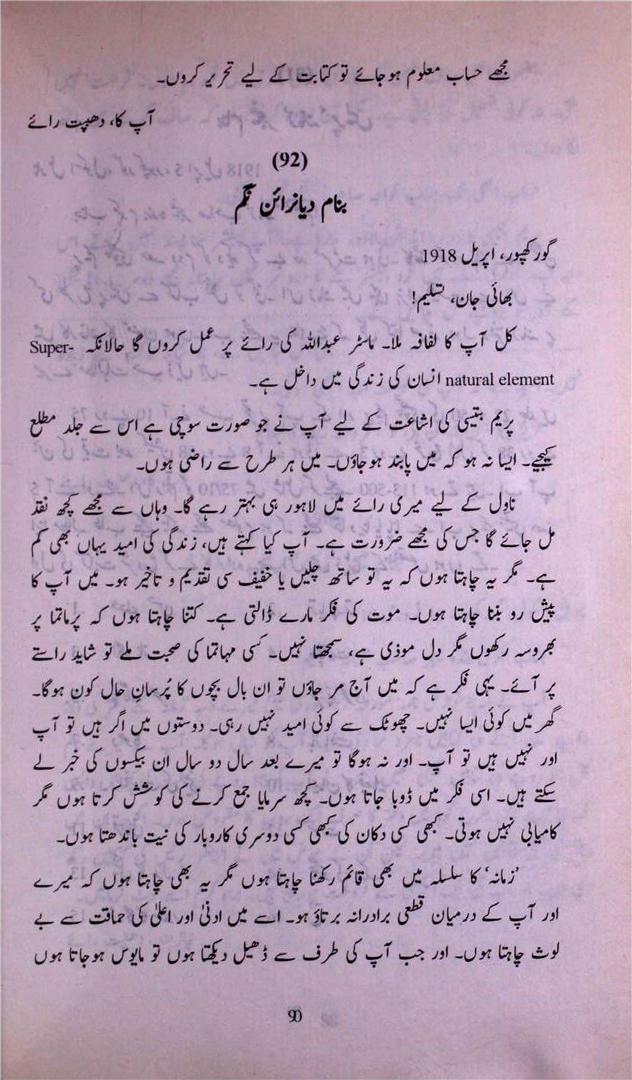 مجھے حساب معلوم ہوجائے تو کتابت کے لیے تحریر کروں۔
آپ کا، دھپت رائے
(92)
بنام دیانرائن نگم
گورکھپور، اپریل 1918
بھائی جان، تسلیم!
کل آپ کا لفافہ ملا۔ ماسٹر عبداللہ کی رائے پر عمل کروں گا حالانکہ Super-
natural element انسان کی زندگی میں داخل ہے۔
پریم بتیسی کی اشاعت کے لیے آپ نے جو صورت سوچی ہے اس سے جلد مطلع
کیجیے۔ ایسا نہ ہو کہ میں پابند ہوجاؤں۔ میں ہر طرح سے راضی ہوں۔
ناول کے لیے میری رائے میں لاہور ہی بہتر رہے گا۔ وہاں سے مجھے کچھ نقد
مل جائے گا جس کی مجھے ضرورت ہے۔ آپ کیا کہتے ہیں، زندگی کی امید یہاں بھی کم
ہے۔ مگر یہ چاہتا ہوں کہ یہ تو ساتھ چلیں یا خفیف سی تقدیم و تاخیر ہو۔ میں آپ کا
پیش رو بننا چاہتا ہوں۔ موت کی فکر مارے ڈالتی ہے۔ کتنا چاہتا ہوں کہ پرماتما پر
بھروسہ رکھوں مگر دل موذی ہے، سمجھتا نہیں۔ کسی مہاتما کی صحبت ملے تو شاید راستے
پر آئے۔ یہی فکر ہے کہ میں آج مر جاؤں تو ان بال بچوں کا پُرسانِ حال کون ہوگا۔
گھر میں کوئی ایسا نہیں۔ چھوٹک سے کوئی امید نہیں رہی۔ دوستوں میں اگر ہیں تو آپ
اور نہیں ہیں تو آپ۔ اور نہ ہوگا تو میرے بعد سال دو سال ان بیکسوں کی خبر لے
سکتے ہیں۔ اسی فکر میں ڈوبا جاتا ہوں۔ کچھ سرمایا جمع کرنے کی کوشش کرتا ہوں مگر
کامیابی نہیں ہوتی۔ کبھی کسی دکان کی کبھی کسی دوسری کاروبار کی نیت باندھتا ہوں۔
'زمانہ' کا سلسلہ میں بھی قائم رکھنا چاہتا ہوں مگر یہ بھی چاہتا ہوں کہ میرے
اور آپ کے درمیان قطعی برادرانہ برتاؤ ہو۔ اسے میں ادنیٰ اور اعلیٰ کی حماقت سے بے
لوث چاہتا ہوں۔ اور جب آپ کی طرف سے ڈھیل دیکھتا ہوں تو مایوس ہوجاتا ہوں
90